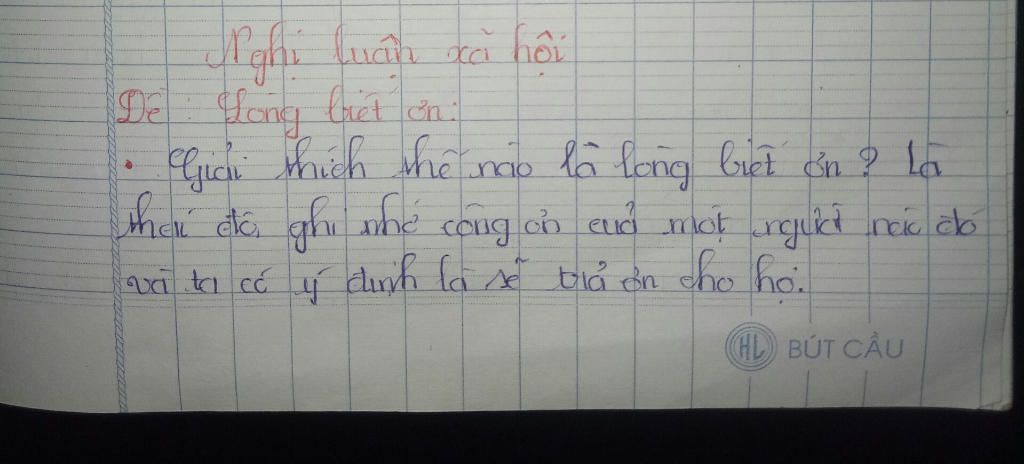 Nghị luận xã hội
Đề: Lòng biết ơn:
• Giải thích thế nào là lòng biết ơn? Là
thái độ, ghi nhớ công ơn của một người nào đó
và ta có ý định là sẽ trả ơn cho họ.
HL BÚT CẦU